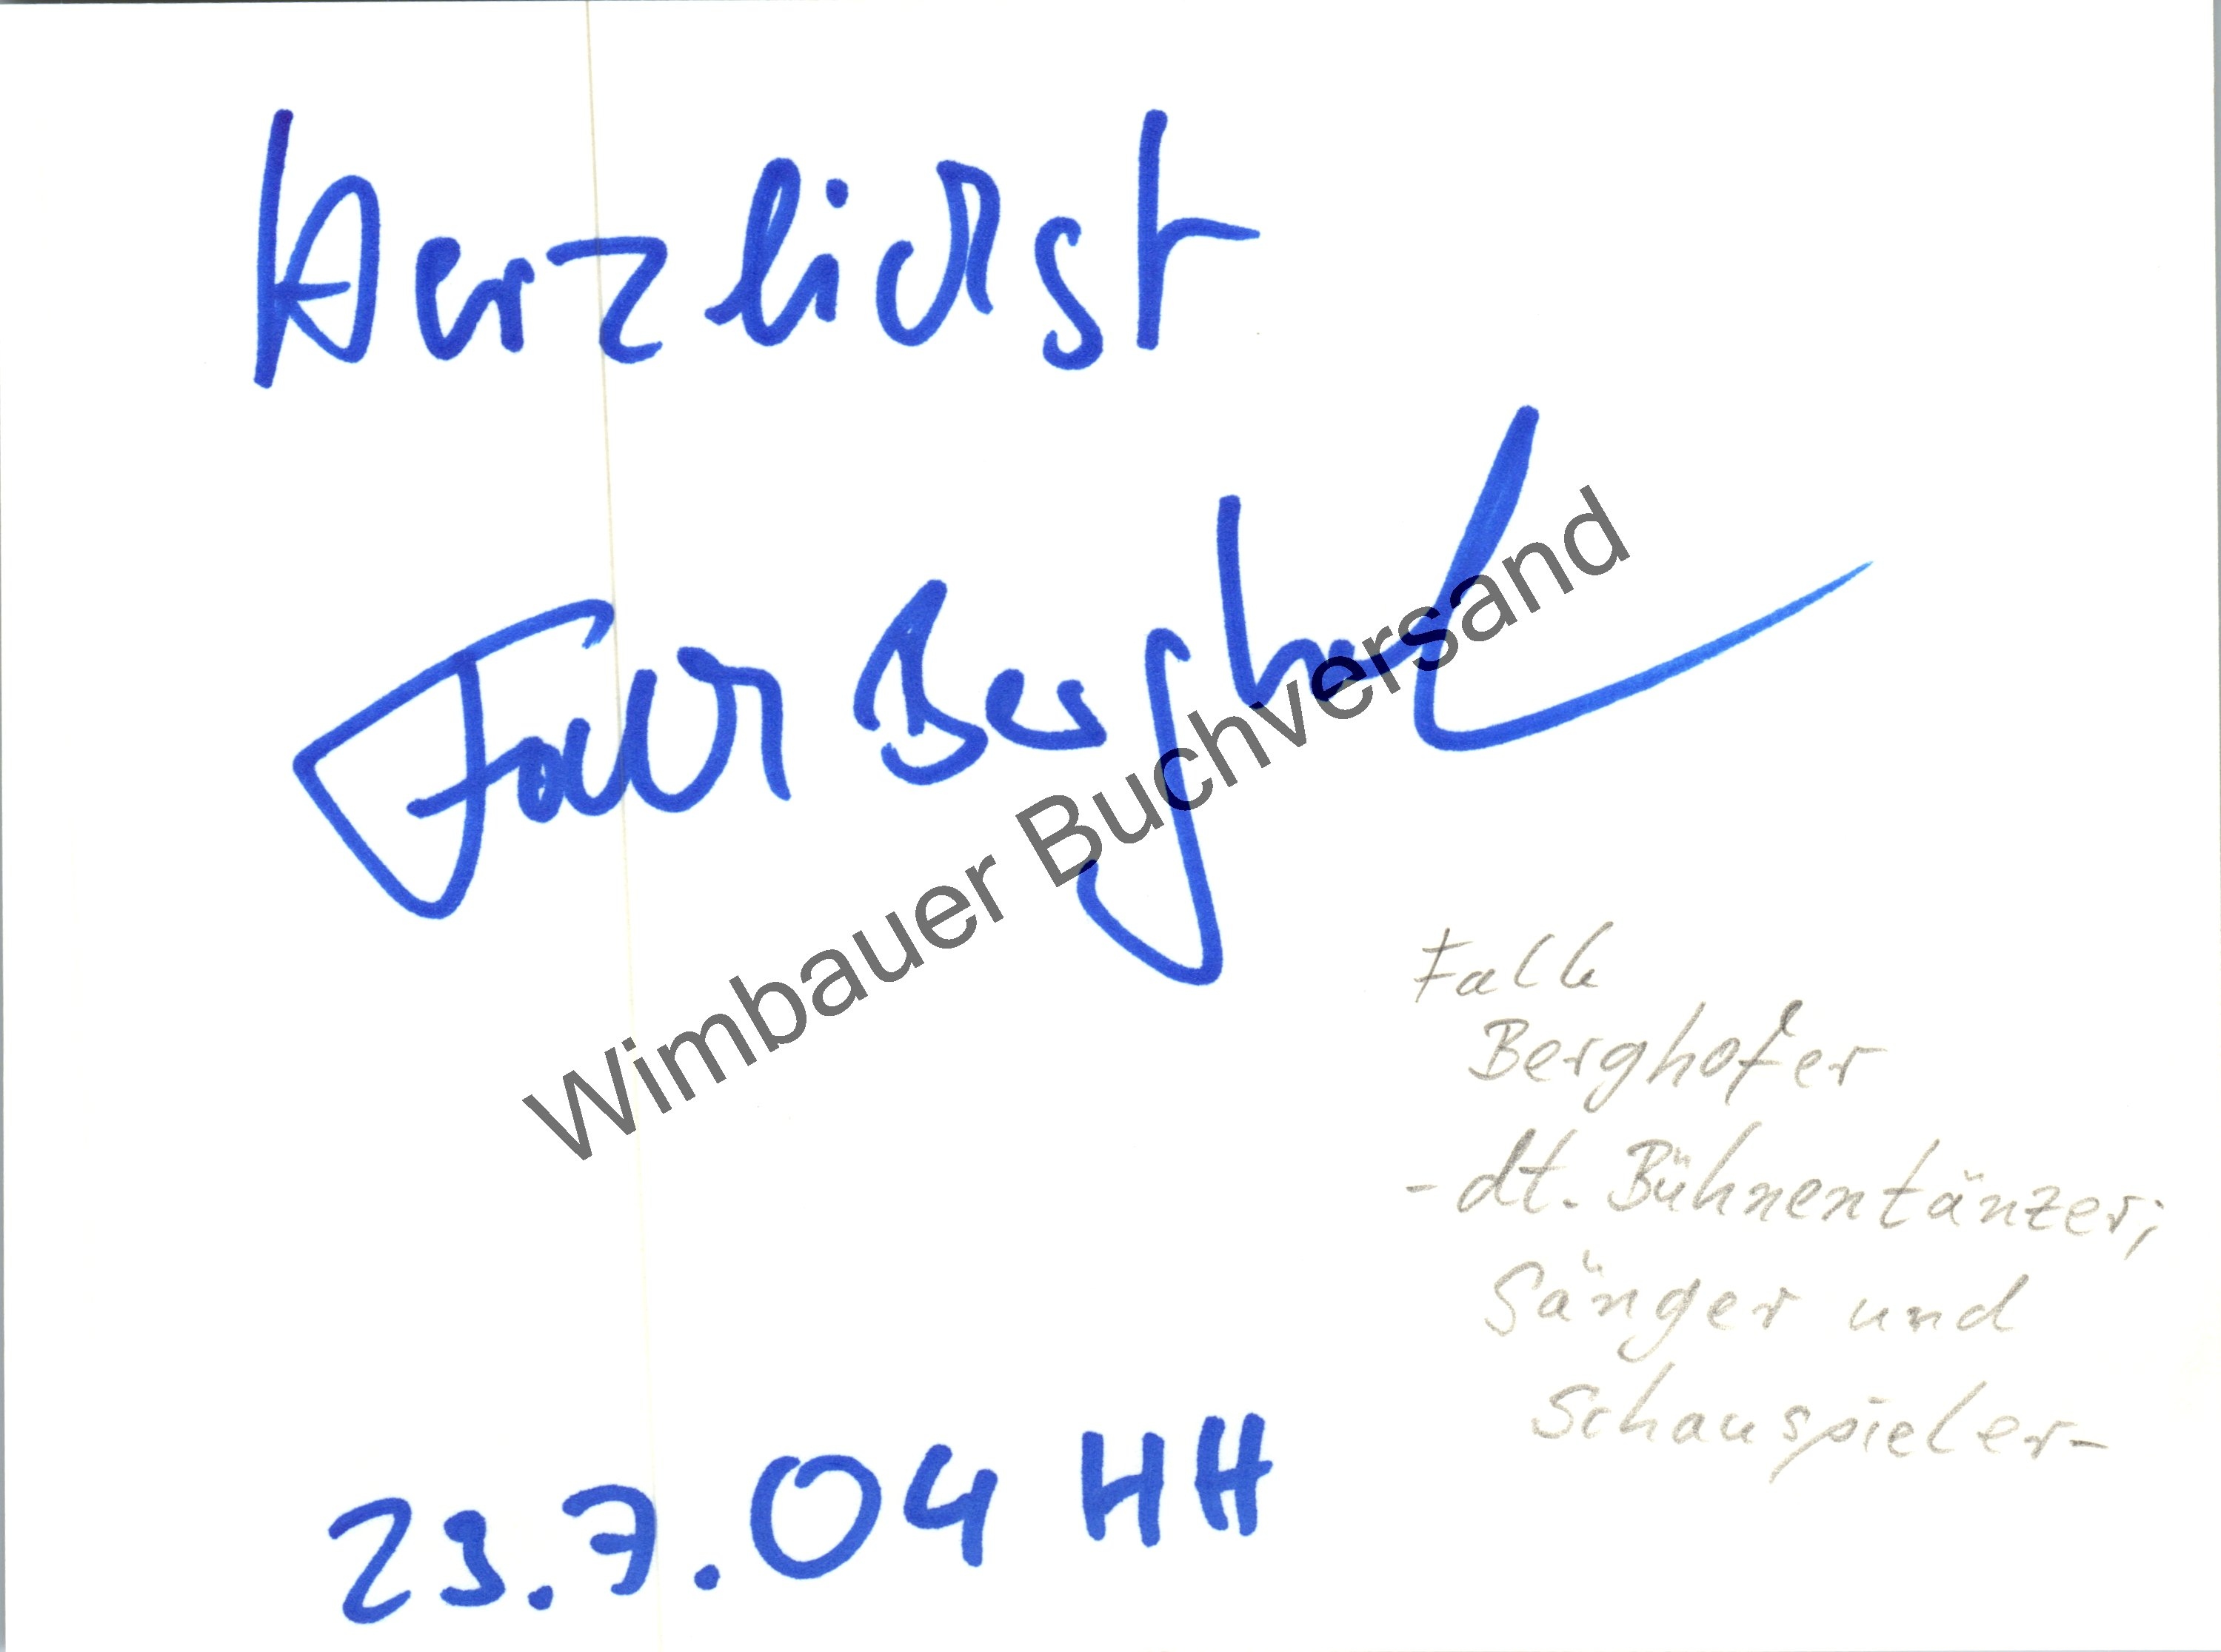 Herzlichst
Falk Berghofer
Wimbauer Buchversand
Falk
Berghofer
- dt. Bühnentänzer,
Sänger und
Schauspieler -
23.7.04 HH